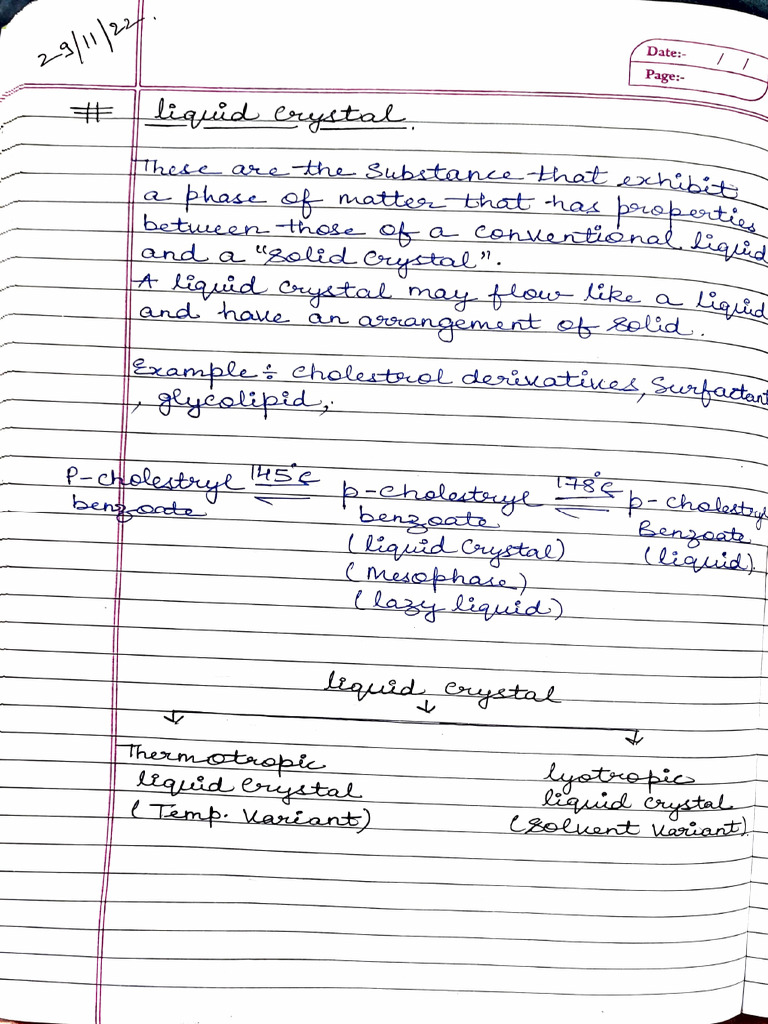 29/11/22.
Date:- / /
Page:-
# liquid crystal.
These are the Substance that exhibit
a phase of matter that has properties
between those of a conventional liquid
and a "Solid Crystal".
A liquid crystal may flow like a liquid
and have an arrangement of solid.
Example ÷ cholestrol derivatives, Surfactant
, glycolipid,.
P-cholestryl 145°C p-cholestryl 178°C p-cholestryl
benzoate ⇌ benzoate ⇌ Benzoate
(liquid Crystal) (liquid).
(Mesophase)
(lazy liquid)
liquid crystal
↓ ↓ ↓
Thermotropic lyotropic
liquid crystal liquid crystal
(Temp. Variant) (Solvent Variant)